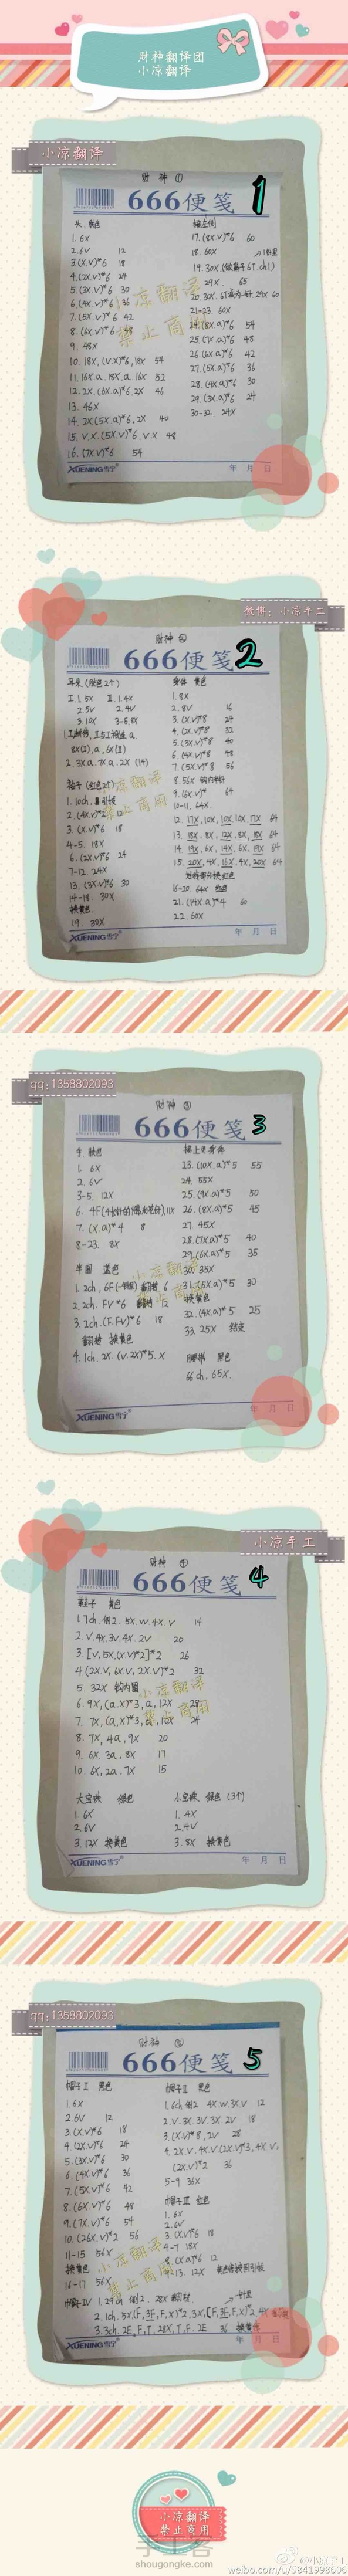 财神翻译团
小凉翻译
小凉翻译
财神 ①
666便笺
1
头、肤色
1. 6X
2. 6V 12
3. (X.V)*6 18
4. (2X.V)*6 24
5. (3X.V)*6 30
6. (4X.V)*6 36
7. (5X.V)*6 42
8. (6X.V)*6 48
9. 48X
10. 18X, (V.X)*6, 18X 54
11. 16X.a. 18X.a. 16X 52
12. 2X. (6X.a)*6. 2X 46
13. 46X
14. 2X.(5X.a)*6.2X 40
15. V.X.(5X.V)*6.V.X 48
16. (7X.V)*6 54
17. (8X.V)*6 60
18. 60X
19. 30X.(做鼻子6T.ch1)
29X. 65
21-23. 60X
24. (8X.a)*6 54
25. (7X.a)*6 48
26. (6X.a)*6 42
27. (5X.a)*6 36
28. (4X.a)*6 30
29. (3X.a)*6 24
30-32. 24X
小凉翻译
禁止商用
XUENING雪宁
年 月 日
微博:小凉手工
财神 ②
666便笺
2
耳朵(肤色2个)
I. 1. 5X II. 1. 4X
2. 5V 2. 4V
3. 10X 3-5. 8X
8X(II), a, 6X(I)
2. 3X.a.7X.a.2X (14)
2. (4X.V)*2 12
3. (X.V)*6 18
4-5. 18X
6. (2X.V)*6 24
7-12. 24X
13. (3X.V)*6 30
14-18. 30X
换黄色
19. 30X
身体 黄色
1. 8X
2. 8V 16
3. (X.V)*8 24
4. (2X.V)*8 32
5. (3X.V)*8 40
6. (4X.V)*8 48
7. (5X.V)*8 56
8. 56X 钩内半针
9. (6X.V)*8 64
10-11. 64X
12. 17X, 10X, 10X, 10X, 17X 64
13. 18X, 8X, 12X, 8X, 18X 64
14. 19X, 6X, 14X, 6X, 19X 64
15. 20X, 4X, 16X, 4X, 20X 64
16-20. 64X 红色
21. (14X.a)*4 60
22. 60X
小凉翻译
禁止商用
XUENING雪宁
年 月 日
qq:1358802093
财神 ③
666便笺
3
手 肤色
1. 6X
2. 6V
3-5. 12X
7. (X.a)*4 8
8-23. 8X
半圆 蓝色
2. 2ch. FV*6 翻转 12
3. 2ch. (F.FV)*6 18
翻转 换黄色
4. 1ch. 2X. (V.2X)*5. X
接上页身体
23. (10X.a)*5 55
24. 55X
25. (9X.a)*5 50
26. (8X.a)*5 45
27. 45X
28. (7X.a)*5 40
29. (6X.a)*5 35
30. 35X
31. (5X.a)*5 30
换黄色
32. (4X.a)*5 25
33. 25X 结束
腰带 黑色
66ch, 65X.
小凉翻译
禁止商用
XUENING雪宁
年 月 日
小凉手工
财神 ④
666便笺
4
1. 7ch. 倒2. 5X.W.4X.V 14
2. V.4X.3V.4X.2V 20
3. [V,5X.(X.V)*2]*2 26
4. (2X.V, 6X.V, 2X.V)*2 32
5. 32X 钩内圈
6. 9X, (a.X)*3, a, 12X 28
7. 7X, (a,X)*3, a, 10X 24
8. 7X, 4a, 9X 20
9. 6X 3a, 8X 17
10. 6X, 2a. 7X 15
大宝珠 银色
1. 6X
2. 6V
3. 12X 换黄色
小宝珠 银色 (3个)
1. 4X
2. 4V
3. 8X 换黄色
小凉翻译
禁止商用
XUENING雪宁
年 月 日
qq:1358802093
财神 ⑤
666便笺
5
帽子I 黑色
1. 6X
2. 6V 12
3. (X.V)*6 18
4. (2X.V)*6 24
5. (3X.V)*6 30
6. (4X.V)*6 36
7. (5X.V)*6 42
8. (6X.V)*6 48
9. (7X.V)*6 54
10. (26X.V)*2 56
11-15 56X
换黄色
16-17 56X
帽子II 黑色
1. 6ch 倒2 4X.W.3X.V 12
2. V.3X.3V.3X.2V 18
3. (X.V)*8, 2V 28
4. 2X.V.4X.V.(2X.V)*3, 4X.V,
(2X.V)*2 36
5-9 36X
帽子III 红色
1. 6X
2. 6V
3. (X.V)*6 18
4-7 18X
8. (X.a)*6 12
9-13. 12X
帽子IV 1. 29ch 倒2. 28X 翻转
3. 3ch. 2E, F, T, 28X, T, F. 2E 36
小凉翻译
禁止商用
XUENING雪宁
年 月 日
小凉翻译
禁止商用
手工客
shougongke.com
@小凉手工
weibo.com/u/5841998606